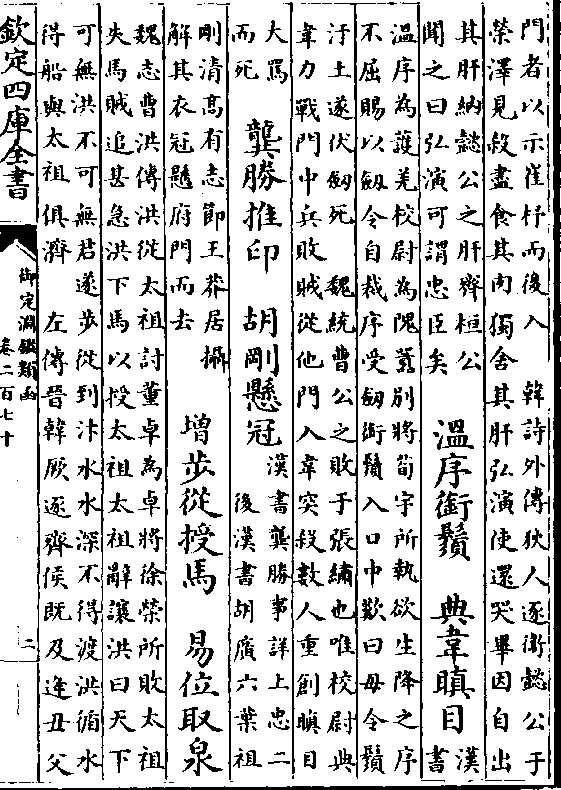 門者以示崔杼而後入　韓詩外傳狄人逐衛懿公于
榮澤見殺盡食其肉獨舍其肝弘演使還哭畢因自出
其肝納懿公之肝齊桓公
聞之曰弘演可謂忠臣矣
溫序銜鬚　典韋瞋目
漢
書
溫序為護羌校尉為隗囂別將荀宇所執欲生降之序
不屈賜以劔令自裁序受劔銜鬚入口中歎曰毋令鬚
汙土遂伏劔死　魏統曹公之敗于張繡也唯校尉典
韋力戰門中兵敗賊從他門入韋突殺數人重創瞋目
大罵
而死
龔勝推印　胡剛懸冠
漢書龔勝事詳上忠二
後漢書胡廣六葉祖
剛清髙有志節王莽居攝
解其衣冠懸府門而去
增步從授馬　易位取泉
魏志曹洪傳洪從太祖討董卓為卓將徐榮所敗太祖
失馬賊追甚急洪下馬以授太祖太祖辭讓洪曰天下
可無洪不可無君遂步從到汴水水深不得渡洪循水
得船與太祖俱濟　左傳晉韓厥逐齊侯既及逢丑父
欽定四庫全書
御定淵鑑類函
卷二百七十
二